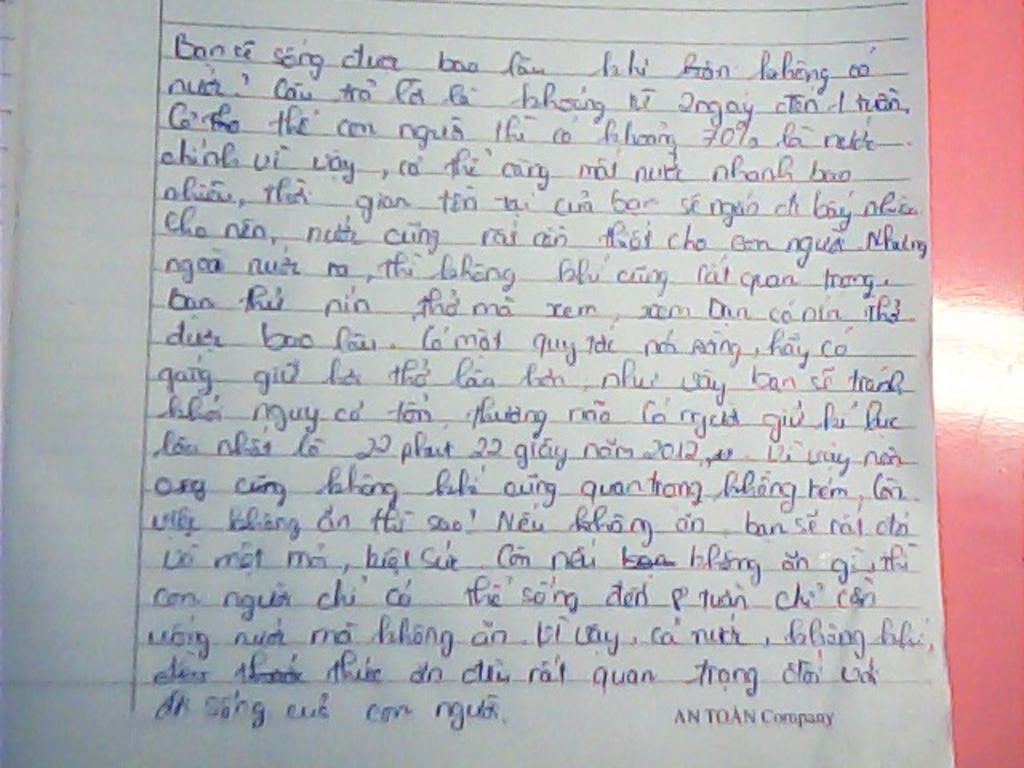 Bạn sẽ sống được bao lâu khi không có
nước? Câu trả lời là khoảng từ 2 ngày đến 1 tuần.
Cơ thể con người thì có khoảng 70% là nước
chính vì vậy, cơ thể càng mất nước nhanh bao
nhiêu, thời gian tồn tại của bạn sẽ ngắn đi bấy nhiêu
Cho nên, nước cũng rất cần thiết cho con người. Nhưng
ngoài nước ra, thì không khí cũng rất quan trọng.
bạn thử nín thở mà xem, xem bạn có nín thở
được bao lâu. Có một quy tắc nói rằng, hãy cố
gắng giữ hơi thở lâu hơn, như vậy bạn sẽ tránh
khỏi nguy cơ tổn thương mà có người giữ kỉ lục
lâu nhất là 22 phút 22 giây năm 2012, Vì vậy nên
cũng không khí cũng quan trọng không kém, Còn
việc không ăn thì sao? Nếu không ăn bạn sẽ rất đói
và mệt mỏi, kiệt sức. Còn nếu không ăn gì, thì
con người chỉ có thể sống đến 8 tuần chỉ cần
uống nước mà không ăn. Vì vậy, cả nước, không khí,
thức ăn đều rất quan trọng đối với
đời sống của con người.
AN TOÀN Company